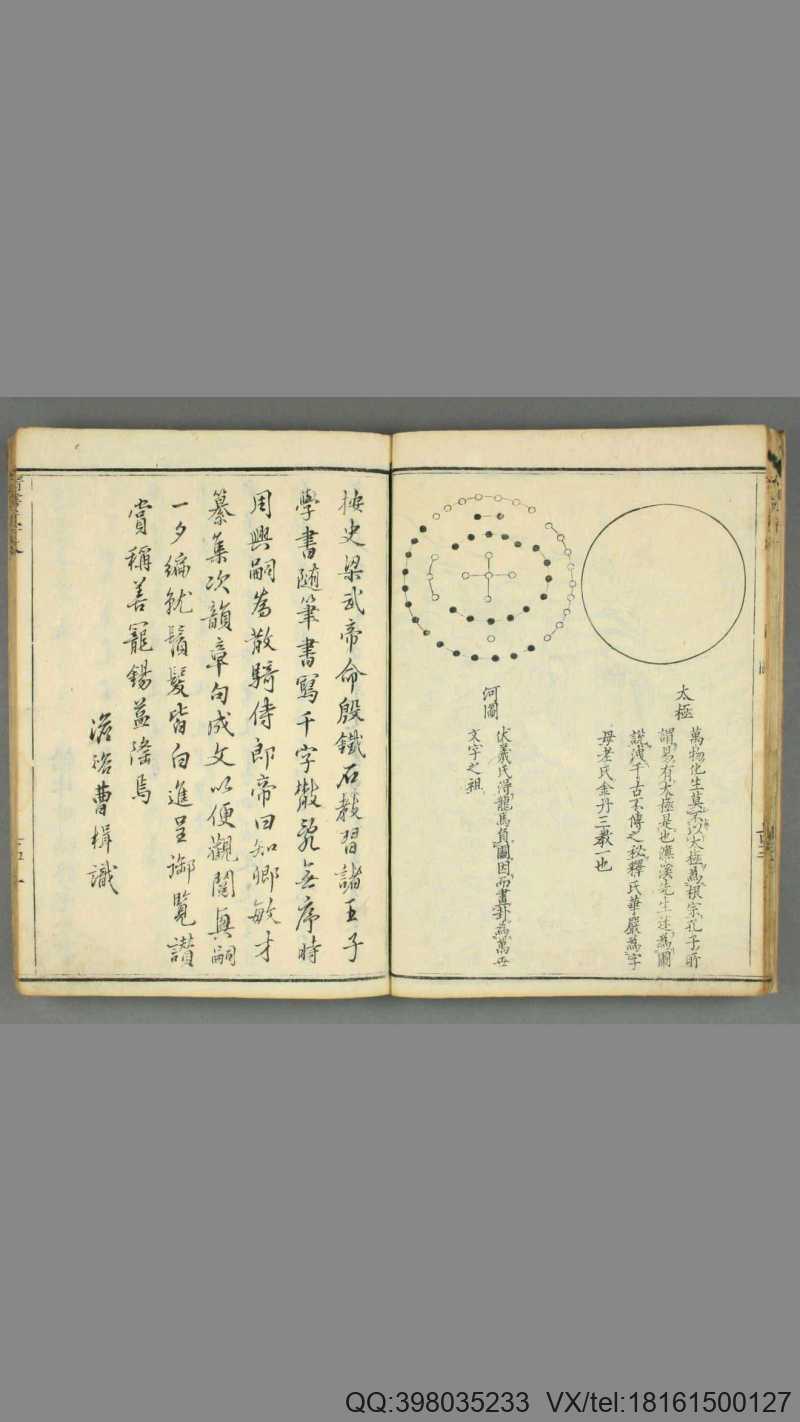 太極
萬物化生莫不以太極為根宗孔子所
謂易有太極是也濂溪先生述為圖
說洩千古不傳之秘釋氏華嚴為字
母老氏金丹三教一也
河圖
伏羲氏得龍馬負圖因而畫卦為萬世
文字之祖
按史梁武帝命殷鐵石教習諸王子
學書隨筆書寫千字散亂無序時
周興嗣為散騎侍郎帝曰知卿敏才
纂集次韻章句成文以便觀閱興嗣
一夕編就鬚髮皆白進呈御覽讚
賞稱善寵錫益隆焉
曹楫識
QQ:398035233 VX/tel:18161500127